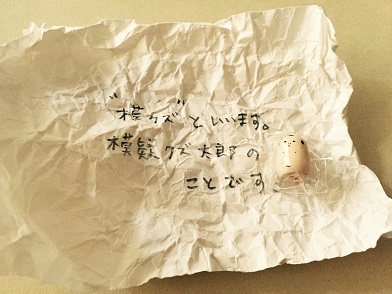 "模クズ"といいます。
模疑クズ太郎の
ことです。